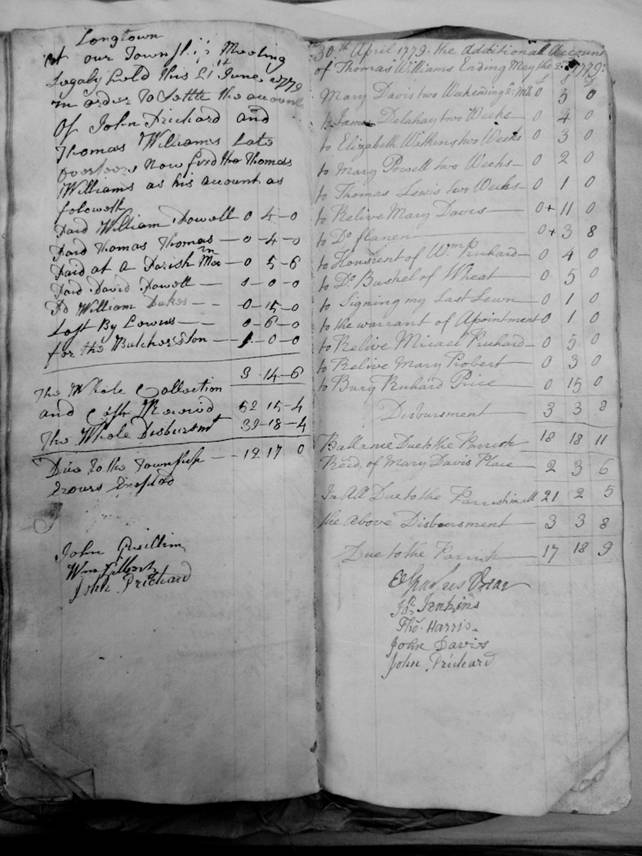 Longtown
At our Township Meeting
Legaly hold this 21st June 1779
in order to Settle the account
Of John Prichard and
Thomas Williams Late
overseers now find the Thomas
Williams as his account as
foloweth
Paid William Powell - 0 - 4 - 0
Paid Thomas Thomas - 0 - 4 - 0
Paid at a Parish - 0 5 - 6
Paid David Powell - 0 - 0
Pd William - - 0 - 15 - 0
Lost By - 0 - 6 - 0
for the - 1 - 0 - 0
3 - 14 - 6
The Whole Collection
and Cash 52 15 - 4
The Whole Disbursmt 39 - 18 - 4
Due to the Township - 12 17 0
Errours Excepted
John
Wm
John Prichard
30th April 1779. the Additional Account
of Thomas Williams Ending May the 1779:
Mary Davis two 0 3 0
to Delahay two Weeks - 0 4 0
to Elizabeth Watkins two Weeks 0 3 0
to Mary Powell two Weeks - 0 2 0
to Thomas Lewis two Weeks - 0 1 0
to Relive Mary Davis - 0 + 11 0
to Do flanen - 0 + 3 8
to Houserent of Wm Prichard - 0 4 0
to Do Bushel of Wheat - 0 5 0
to Signing my Last Lewn - 0 1 0
to the warrant of Apointment 0 1 0
to Relive Micael Prichard - 0 5 0
to Relive Mary Probert - 0 3 0
to Bury Price - 0 15 0
Disbursment - 3 3 8
Ballence Due to the Parrish 18 18 11
of Mary Davis Place - 2 3 6
In All Due to the 21 2 5
the above Disbursment - 3 3 8
Due to the Parrish 17 18 9
Charles
Jn Jenkins
Tho. Harris
John Davies
John Prichard